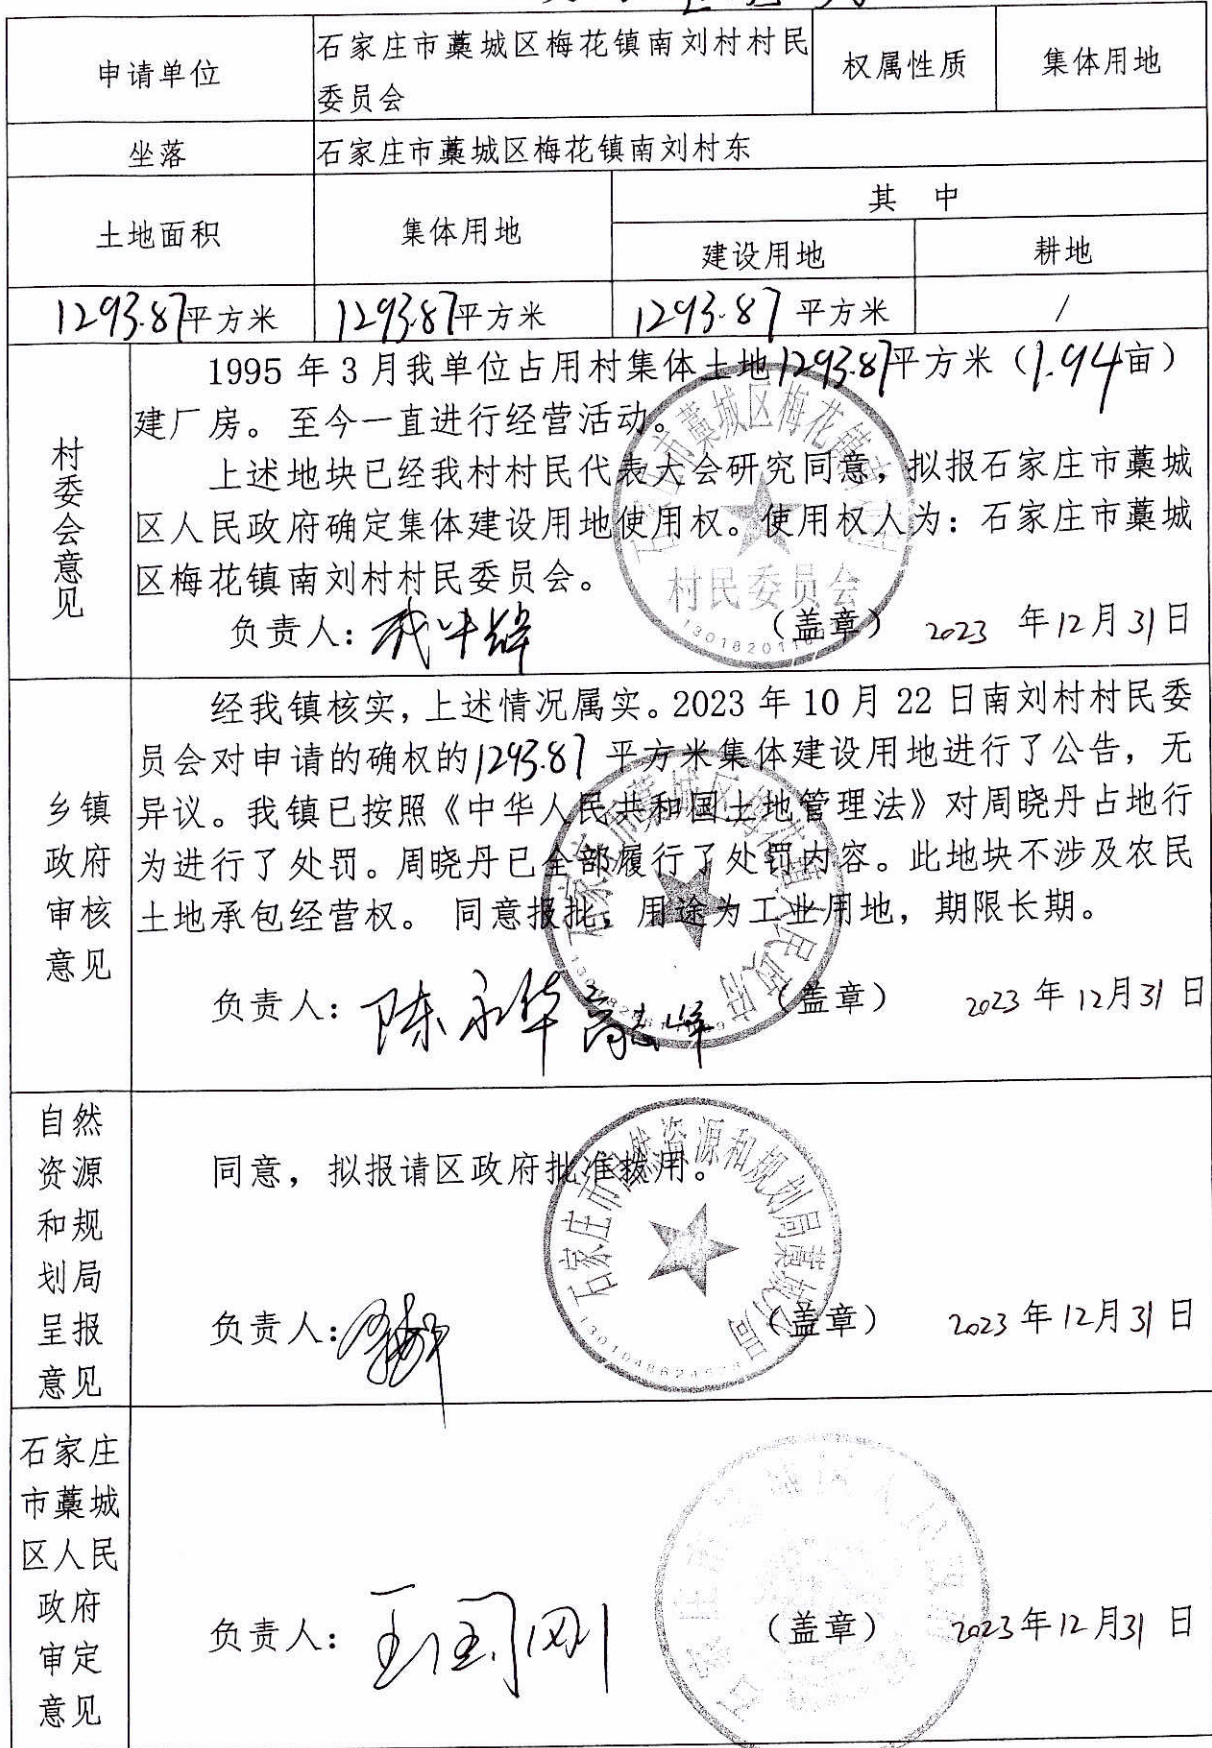 申请单位
石家庄市藁城区梅花镇南刘村村民
委员会
权属性质
集体用地
坐落
石家庄市藁城区梅花镇南刘村东
土地面积
集体用地
其 中
建设用地
耕地
1293.87平方米
1293.87平方米
1293.87平方米
/
村委会意见
1995年3月我单位占用村集体土地1293.87平方米（1.94亩）
建厂房。至今一直进行经营活动。
上述地块已经我村村民代表大会研究同意，拟报石家庄市藁城
区人民政府确定集体建设用地使用权。使用权人为：石家庄市藁城
区梅花镇南刘村村民委员会。
村民委员会
负责人：
（盖章） 2023 年12月31日
乡镇
政府
审核
意见
经我镇核实，上述情况属实。2023年10月22日南刘村村民委
员会对申请的确权的1293.87平方米集体建设用地进行了公告，无
异议。我镇已按照《中华人民共和国土地管理法》对周晓丹占地行
为进行了处罚。周晓丹已全部履行了处罚内容。此地块不涉及农民
土地承包经营权。 同意报批。用途为工业用地，期限长期。
负责人：陈永华 高志峰 （盖章） 2023年12月31日
自然
资源
和规
划局
呈报
意见
同意，拟报请区政府批准拨用。
石家庄市自然资源和规划局藁城分局
负责人：
（盖章） 2023年12月31日
石家庄
市藁城
区人民
政府
审定
意见
负责人：
（盖章） 2023年12月31日